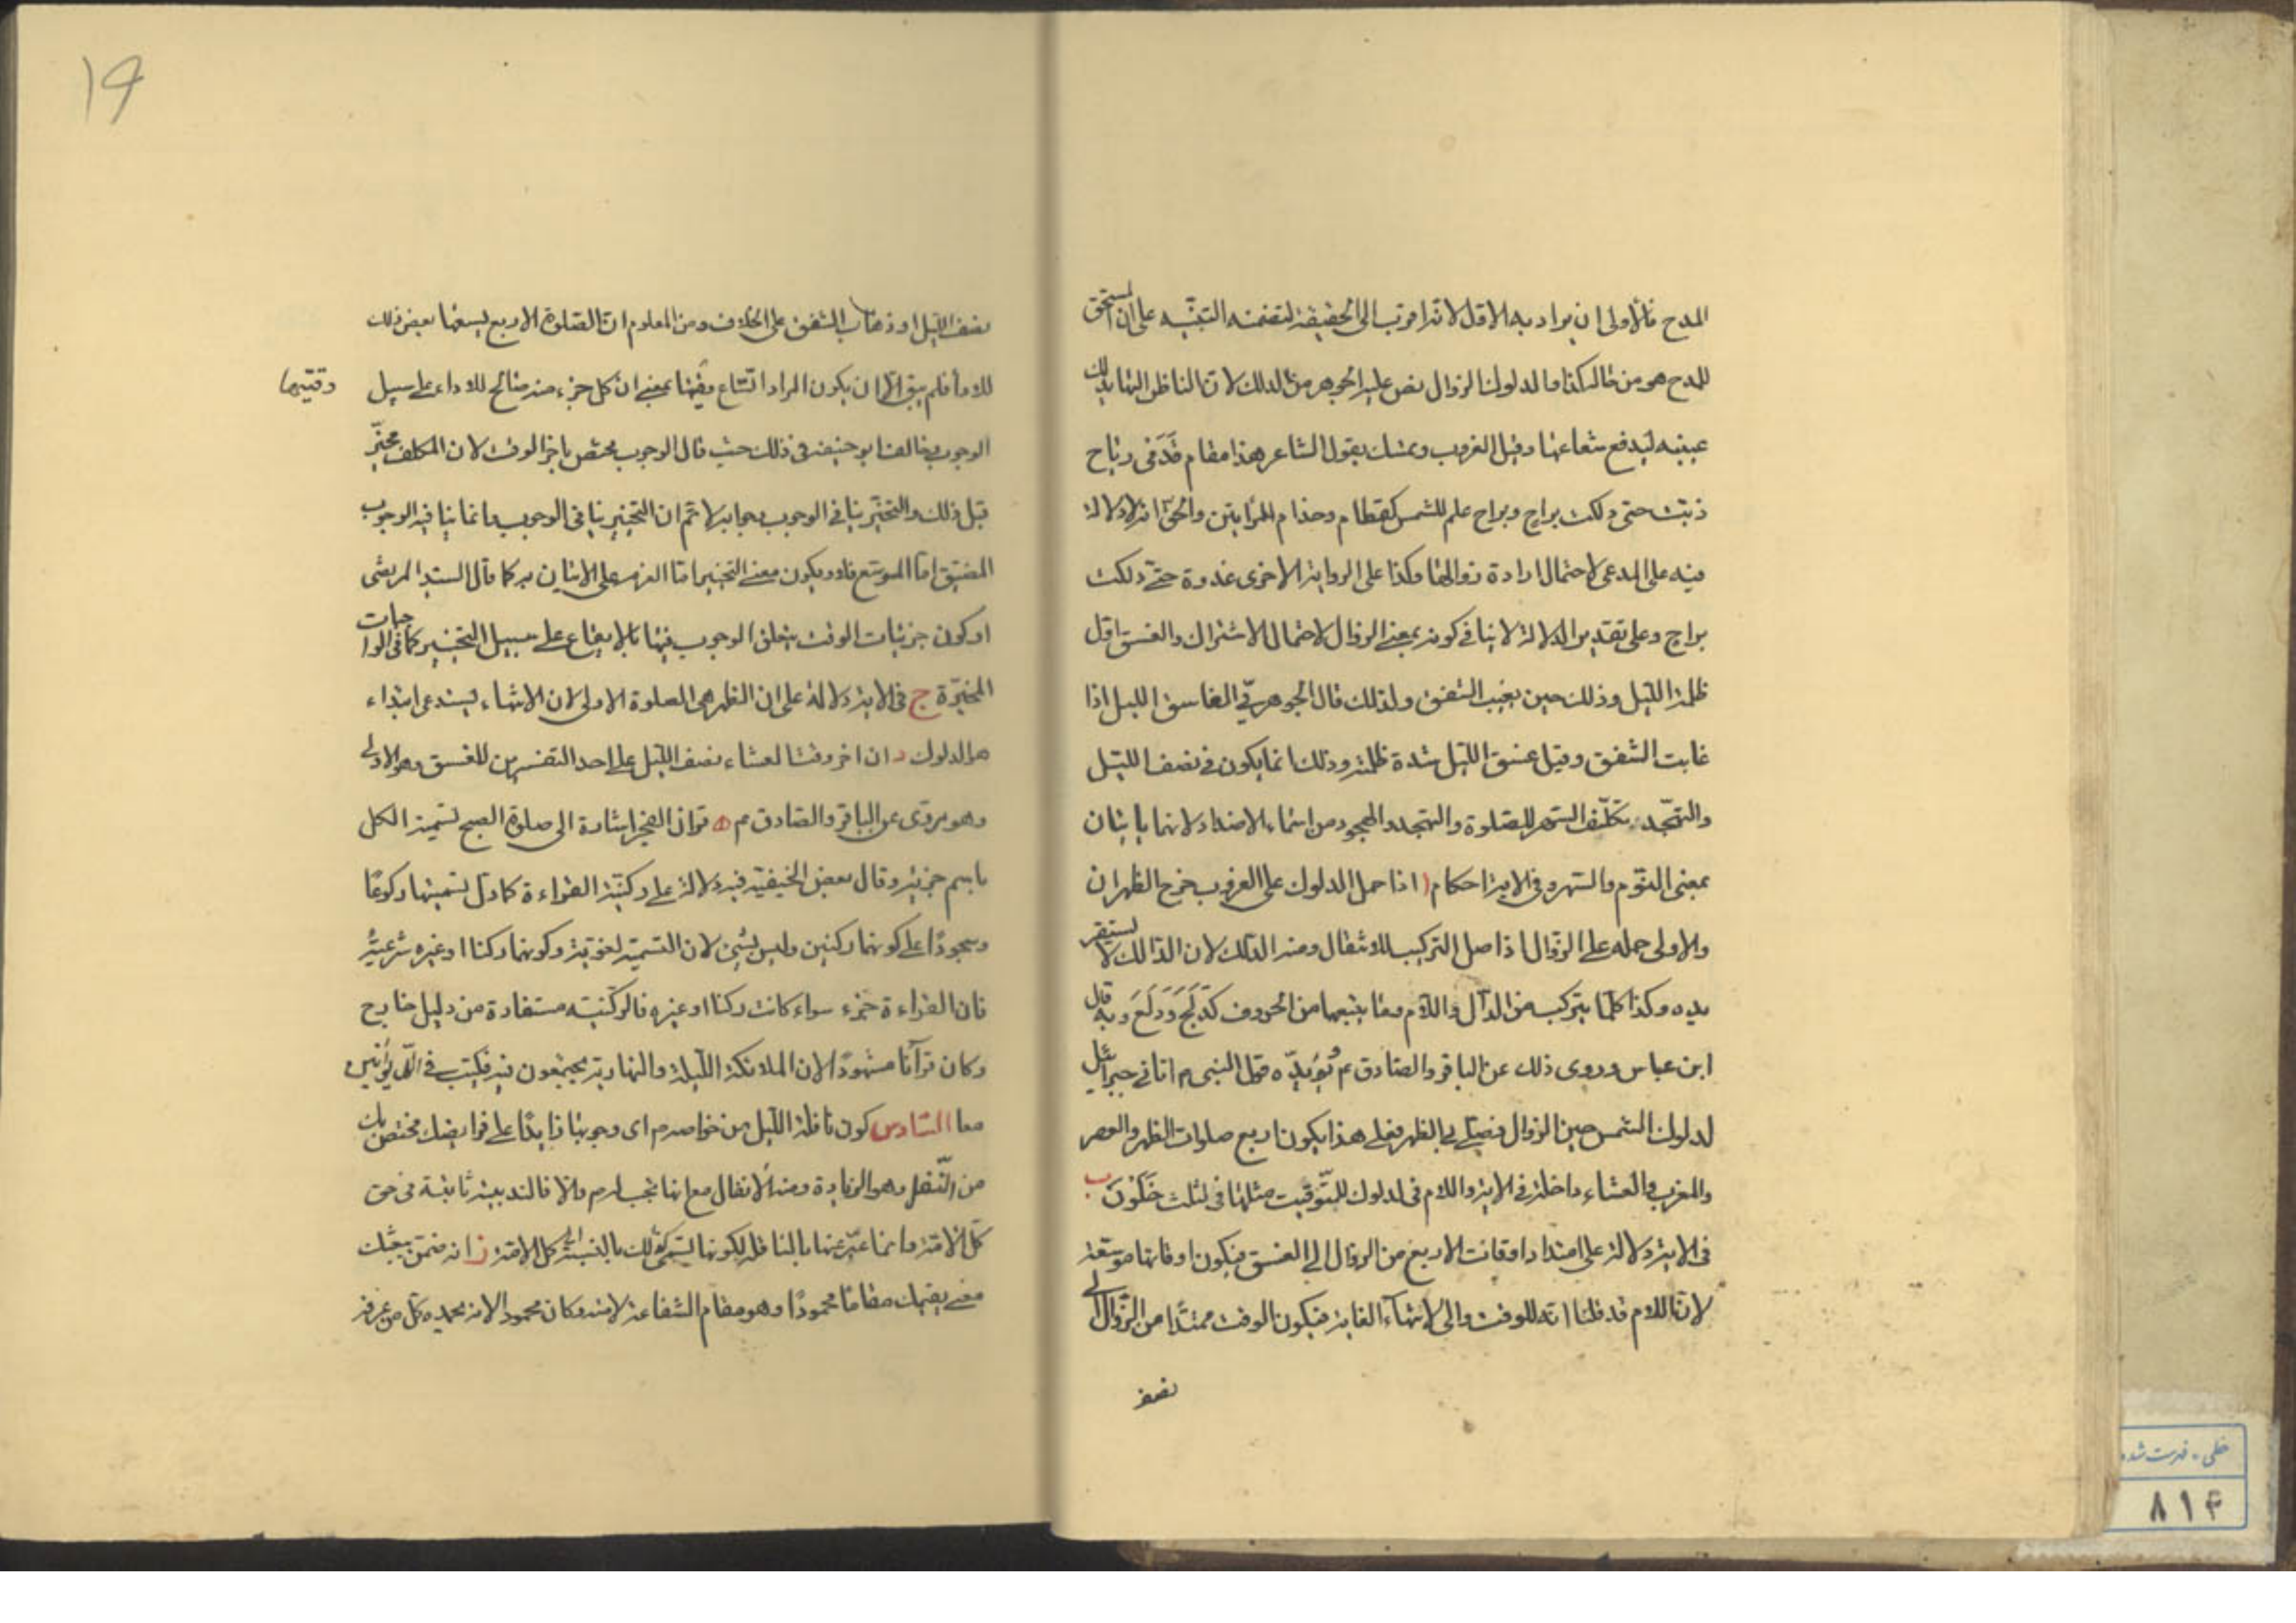 المدح فالأولى ان يراد به الاول لانه اقرب الى الحقيقة لتضمنه التنبيه على ان المستحق
للمدح هو من خالك كذا والدلوك الزوال نص عليه الجوهر من الدلك لان الناظر اليها يدلك
عينيه ليدفع شعاعها وقيل الغروب وتمسك بقول الشاعر هذا مقام قدمى رباح
ذبت حتى دلكت براح وبراح علم للشمس كقطام وحذام المرأتين والحق انه لا دلالة
فيه على المدعى لاحتمال ارادة زوالها وكذا على الرواية الاخرى غدوة حتى دلكت
براح وعلى تقدير الدلالة لا ينافى كونه بمعنى الزوال لاحتمال الاشتراك والغسق اول
ظلمة الليل وذلك حين يغيب الشفق ولذلك قال الجوهرى الغاسق الليل اذا
غابت الشفق وقيل غسق الليل شدة ظلمته وذلك انما يكون فى نصف الليل
والتهجد تكلف السهر للصلوة والتهجد والهجود من اسماء الاضداد لانهما ياتيان
بمعنى النوم والسهر وفى الاية احكام ا اذا حمل الدلوك على الغروب خرج الظهران
والاولى حمله على الزوال اذ اصل التركيب للانتقال ومنه الدلك لان الدالك لا تستقر
يده وكذا كلما يتركب من الدال واللام وما يتبعهما من الحروف كدَلَجَ ودَلَعَ وبه قال
ابن عباس وروى ذلك عن الباقر والصادق ع ويؤيده قول النبى م اتانى جبرائيل
لدلوك الشمس حين الزوال فصلى بى الظهر فعلى هذا يكون اربع صلوات الظهر والعصر
والمغرب والعشاء داخلة فى الاية واللام فى لدلوك للتوقيت مثلها فى لثلث خَلَوْنَ ب
فى الاية دلالة على امتداد اوقات الاربع من الزوال الى الغسق فيكون اوقاتها موسعة
لان اللام قد قلنا انه للوقت والى لانتهاء الغاية فيكون الوقت ممتدا من الزوال الى
نصف
19
نصف الليل او ذهاب الشفق على الخلاف ومن المعلوم ان الصلوة الاربع ليسعها بعض ذلك
للاما فلم يبق الا ان يكون المراد اتساع وقتها بمعنى ان كل جزء منه صالح للاداء على سبيل
وقتيهما
الوجوب وخالفنا بو حنيفة فى ذلك حيث قال الوجوب مختص باخر الوقت لان المكلف مخير
قبل ذلك والتخيير ينافى الوجوب جوابه لا ثم ان التخيير ينافى الوجوب وانما ينافيه الوجوب
المضيق اما الموسع فلا ويكون معنى التخيير اما العزم على الاتيان به كما قال السيد المرتضى
او كون جزئيات الوقت يتعلق الوجوب فيها بالايقاع على سبيل التخيير كما فى الواجبات
المخيرة ج فى الاية دلالة على ان الظهر هى الصلوة الاولى لان الانتهاء يستدعى ابتداء
هو الدلوك د ان اخر وقت العشاء نصف الليل على احد التفسيرين للغسق وهو الاولى
وهو مروى عن الباقر والصادق م ه قران الفجر اشارة الى صلوة الصبح تسمية الكل
باسم جزئه وقال بعض الحنيفية فيه دلالة على ركنية القراءة كما دل تسميتها ركوعًا
وسجودًا على كونهما ركنين وليس بشئ لان التسمية لغوية وكونهما ركنا او غيره شرعية
فان القراءة جزء سواء كانت ركنا او غيره فالركنية مستفادة من دليل خارج
وكان قرآنا مشهودًا لان الملائكة الليلة والنهارية يجتمعون فيه فيكتب فى الديوانين
معا السادس كون نافلة الليل من خواصه م اى وجوبها زايدًا على فرايضك مختص بك
من النفل وهو الزيادة ومنه الانفال مع انها تجب له م والا فالندبية ثابتة فى حق
كل الامة وانما عبر عنها بالنافلة لكونها تسمى كذلك بالنسبة الى كل الامة ز انه ضمن يبعثك
معنى يقيمك مقامًا محمودًا وهو مقام الشفاعة لامته وكان محمود الانه يحمده كل من عرفه
خطى - فهرست شده
۸۱۴